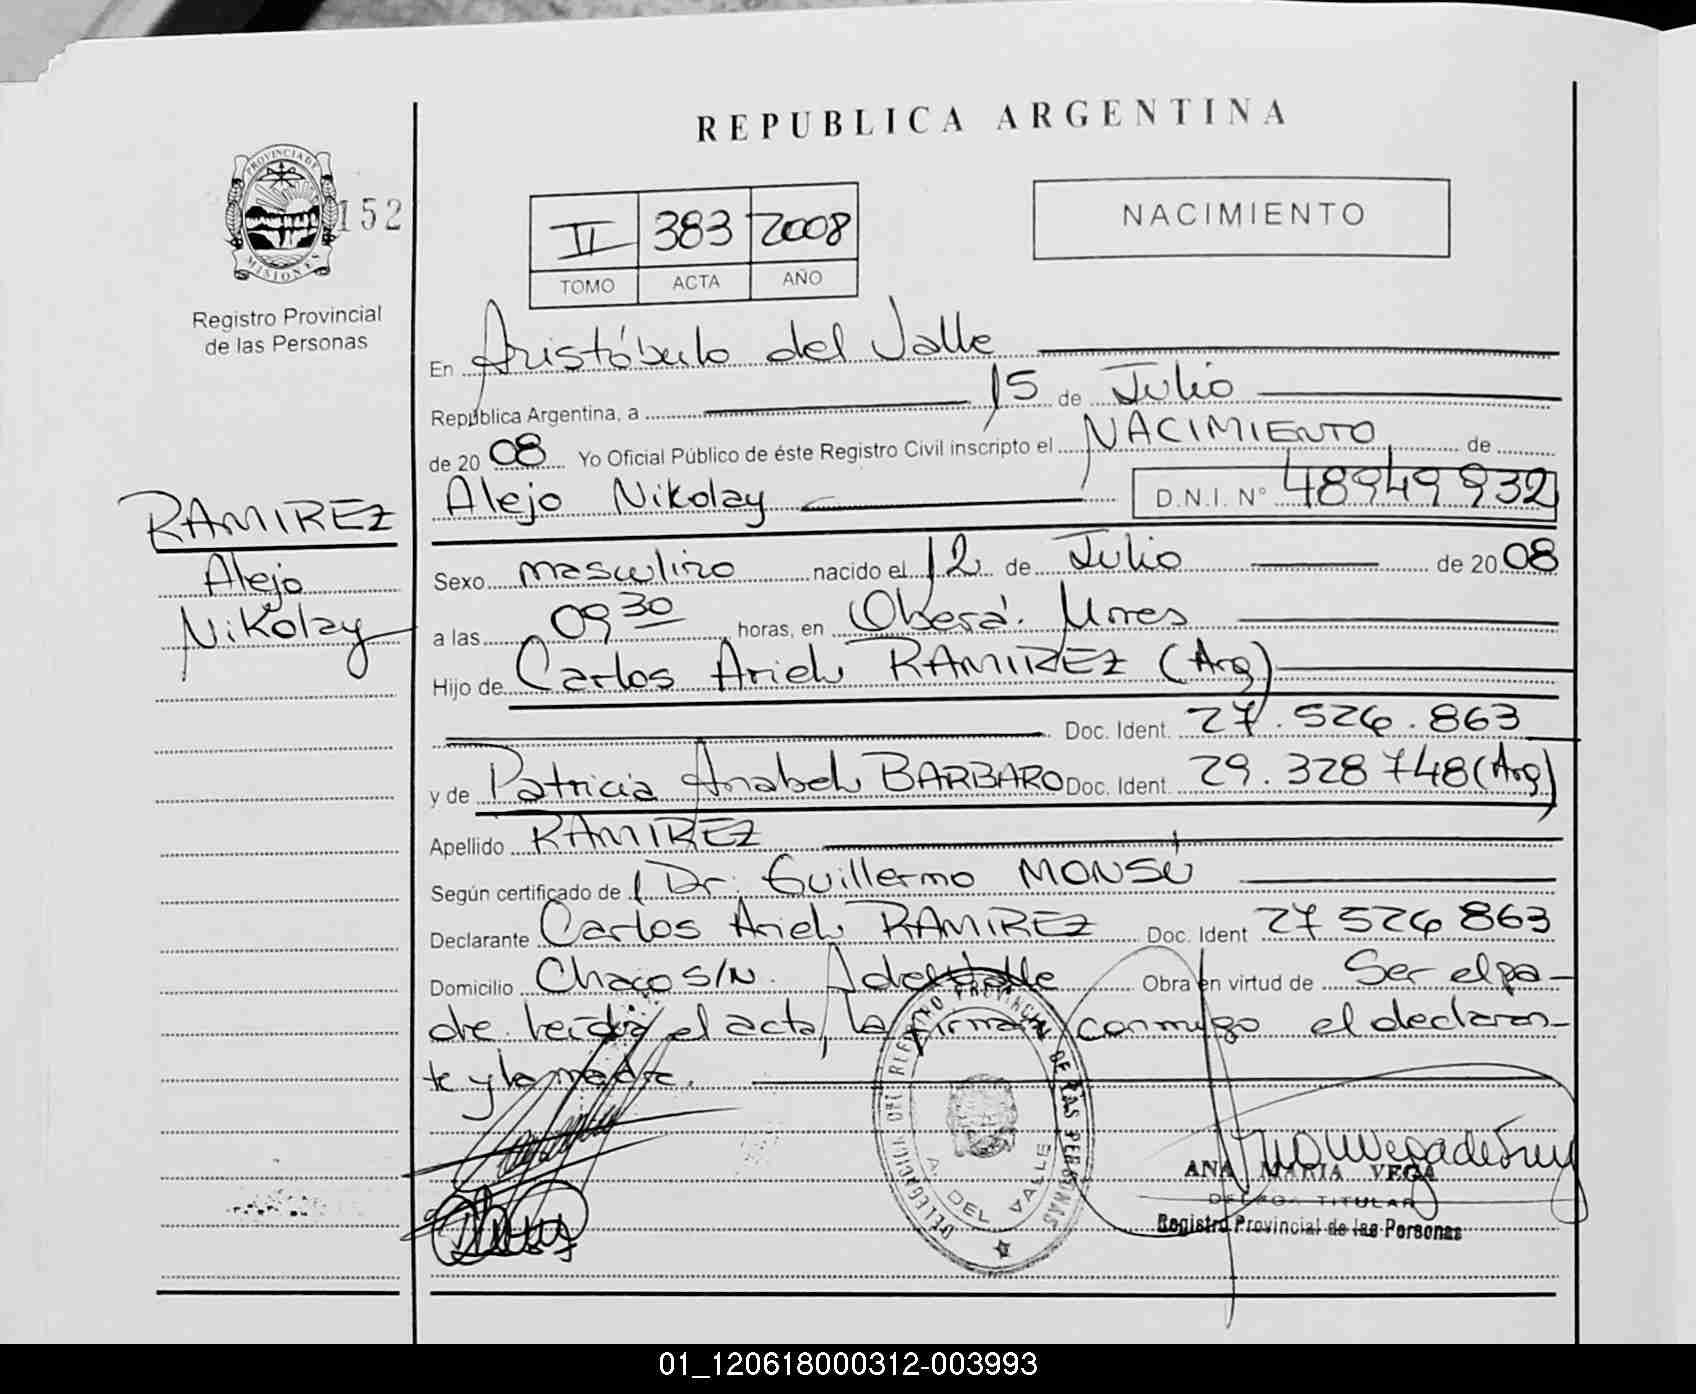 REPUBLICA ARGENTINA
PROVINCIA DE
MISIONES
152
II 383 2008
TOMO ACTA AÑO
NACIMIENTO
Registro Provincial
de las Personas
En Aristóbulo del Valle
República Argentina, a 15 de Julio
de 2008 Yo Oficial Público de éste Registro Civil inscripto el NACIMIENTO de
Alejo Nikolay D.N.I. Nº 48949932
RAMIREZ
Alejo
Nikolay
Sexo masculino nacido el 12 de Julio de 2008
a las 09 30 horas, en Oberá. Mnes
Hijo de Carlos Ariel RAMIREZ (Arg)
Doc. Ident. 27.526.863
y de Patricia Anabel BARBARO Doc. Ident. 29.328748 (Arg)
Apellido RAMIREZ
Según certificado de Dr. Guillermo MONSÚ
Declarante Carlos Ariel RAMIREZ Doc. Ident 27526863
Domicilio Chaco S/N. A del Valle Obra en virtud de Ser el pa-
dre leída el acta, la firman conmigo el declaran-
te y la madre.
DELEGACION REGISTRO PROVINCIAL DE LAS PERSONAS
A. DEL VALLE
ANA MARIA VEGA
DELEGADA TITULAR
Registro Provincial de las Personas
01_120618000312-003993